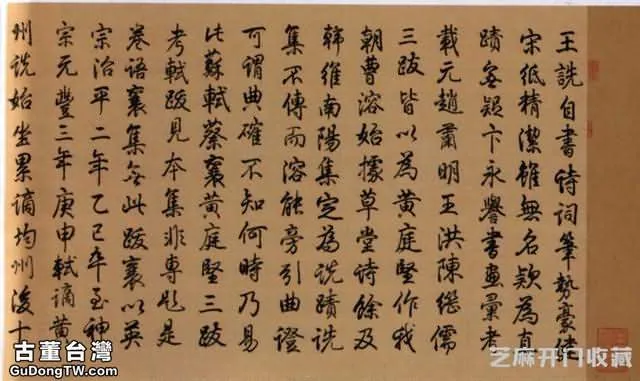 王詵自書詩詞筆勢豪健
宋紙精潔雖無名款為真
蹟無疑卞永譽書畫彙考
載元趙肅明王洪陳繼儒
三跋皆以為黃庭堅作我
朝曹溶始據草堂詩餘及
韓維南陽集定為詵蹟詵
集不傳而溶能旁引曲證
可謂典確不知何時乃易
此蘇軾蔡襄黃庭堅三跋
考軾跋見本集非專題是
卷語襄集無此跋襄以英
宗治平二年乙巳卒至神
宗元豐三年庚申軾謫黃
州詵始坐累謫均州後十
古董台灣
GuDongTW.com
芝麻开门收藏